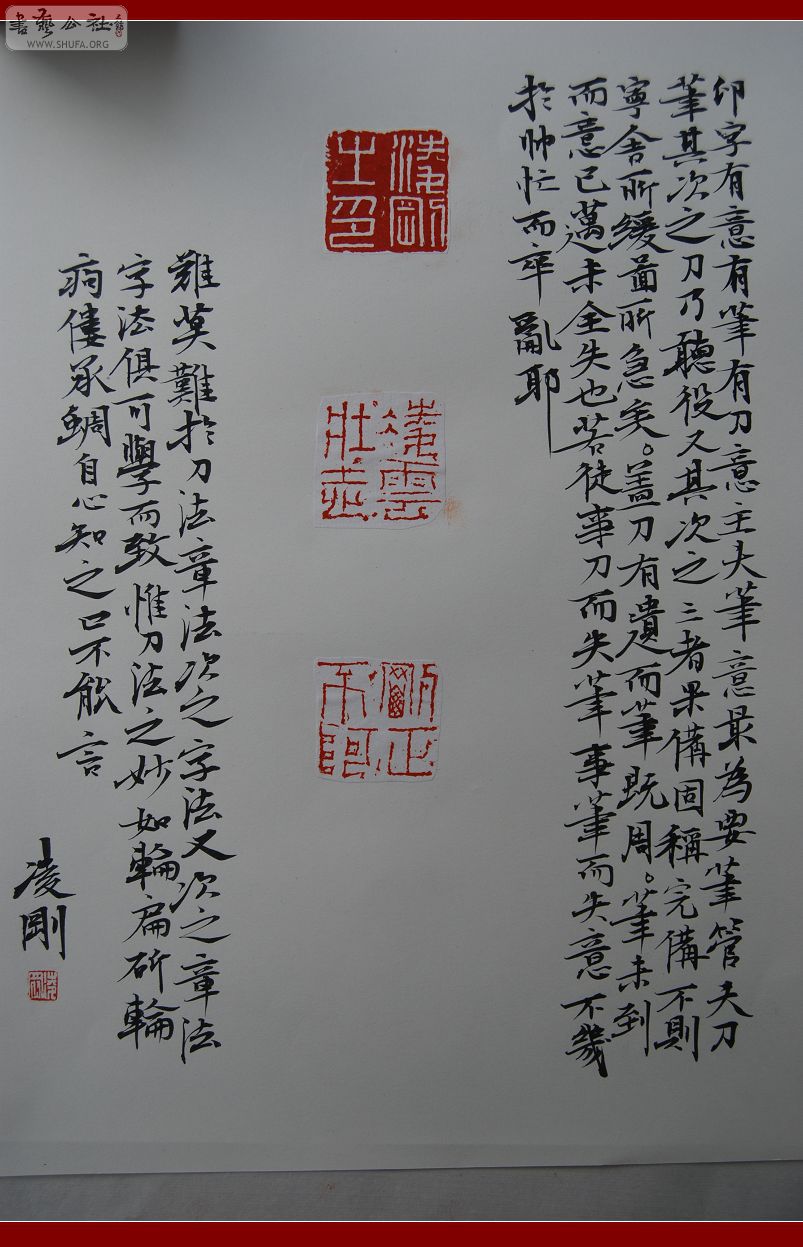 書藝公社
WWW.SHUFA.ORG
印字有意有筆有刀意主夫筆意最為要筆管夫刀
筆其次之刀乃聽役又其次之三者果備固稱完備不則
寧舍所緩啚所急矣。盖刀有遺而筆既周。筆未到
而意已邁未全失也若徒事刀而失筆事筆而失意不幾
於帅忙而卒亂耶
凌剛之印
凌雲壯志
剛正不阿
難莫難於刀法章法次之字法又次之章法
字法俱可學而致惟刀法之妙如輪扁斫輪
痀僂承蜩自心知之口不能言
凌剛